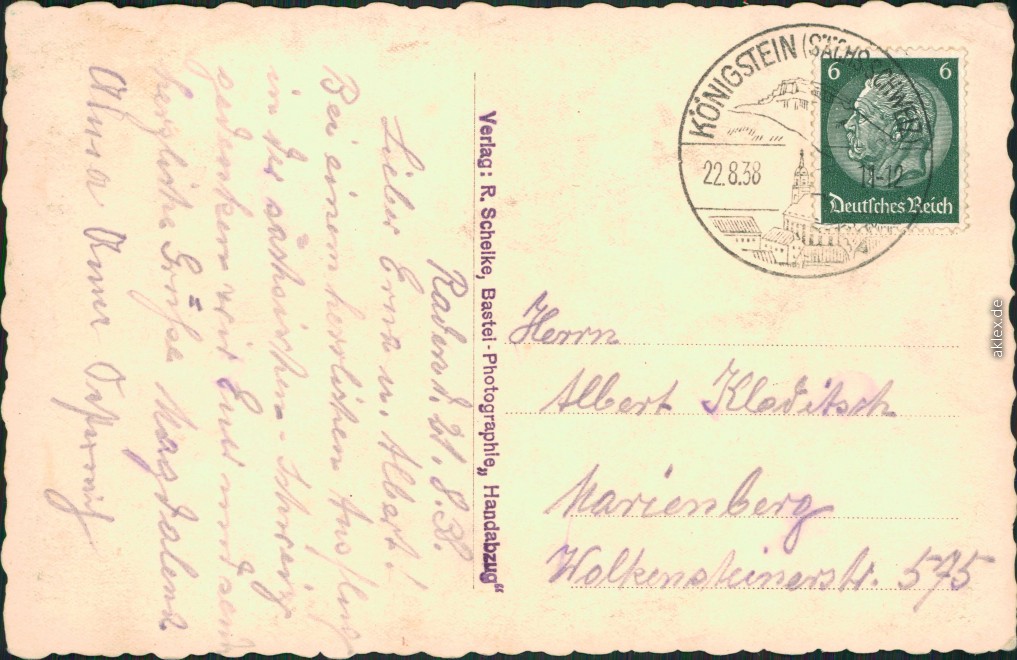 Raden d. 21. 8. 38.
Liebe Erna u. Albert!
Bei einem herrlichen Ausflug
in der sächsischen-Schweiz
gedenken wir Eurer und send
herzliche Grüße Magdalena
Anna
Verlag: R. Scheike, Bastei-Photographie „Handabzug“
KÖNIGSTEIN (SÄCHS. SCHWEIZ)
22.8.38
11-12
6 6
Deutsches Reich
Herrn
Albert Kladitsch
Marienberg
Wolkensteinerstr. 575
aklex.de